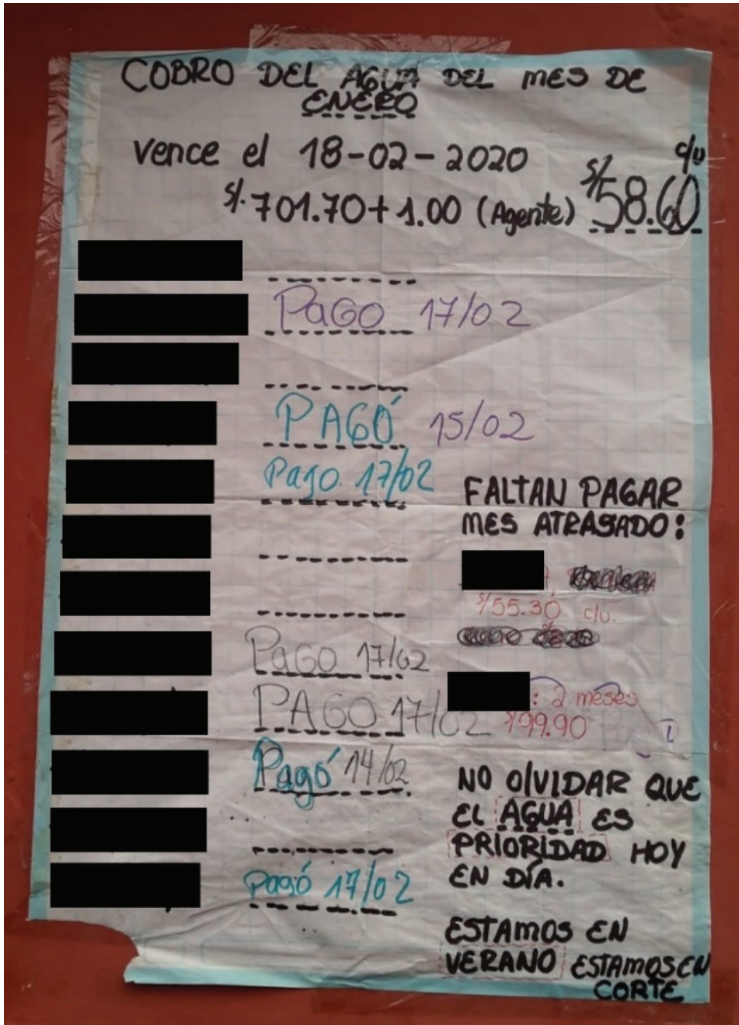 COBRO DEL AGUA DEL MES DE
ENERO
vence el 18-02-2020
S/. 701.70 + 1.00 (Agente) S/58.60 c/u
PaGO 17/02
PAGÓ 15/02
Pago 17/02
PaGO 17/02
PAGO 17/02
Pagó 14/02
Pagó 17/02
FALTAN PAGAR
MES ATRASADO:
S/55.30 c/u.
: 2 meses
S/99.90
NO OlVIDAR QUE
EL AGUA ES
PRIORIDAD HOY
EN DÍA.
ESTAMOS EN
VERANO ESTAMOS EN
CORTE